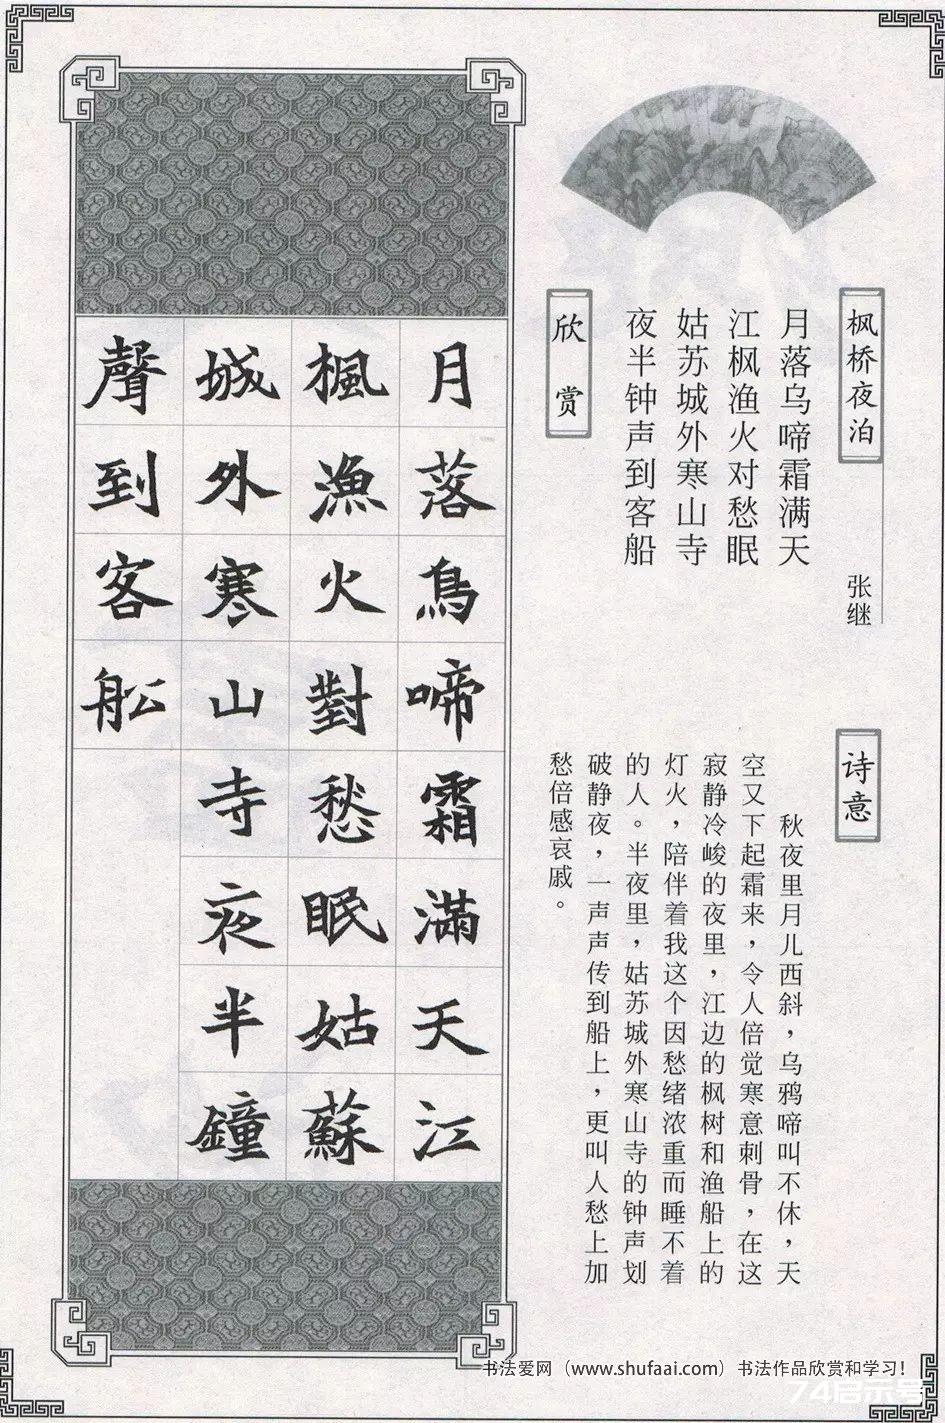 枫桥夜泊
张继
月落乌啼霜满天
江枫渔火对愁眠
姑苏城外寒山寺
夜半钟声到客船
诗意
秋夜里月儿西斜，乌鸦啼叫不休，天
空又下起霜来，令人倍觉寒意刺骨，在这
寂静冷峻的夜里，江边的枫树和渔船上的
灯火，陪伴着我这个因愁绪浓重而睡不着
的人。半夜里，姑苏城外寒山寺的钟声划
破静夜，一声声传到船上，更叫人愁上加
愁倍感哀戚。
欣赏
月落烏啼霜滿天江
楓漁火對愁眠姑蘇
城外寒山寺夜半鐘
聲到客舩
书法爱网（www.shufaai.com）书法作品欣赏和学习！
74启示号